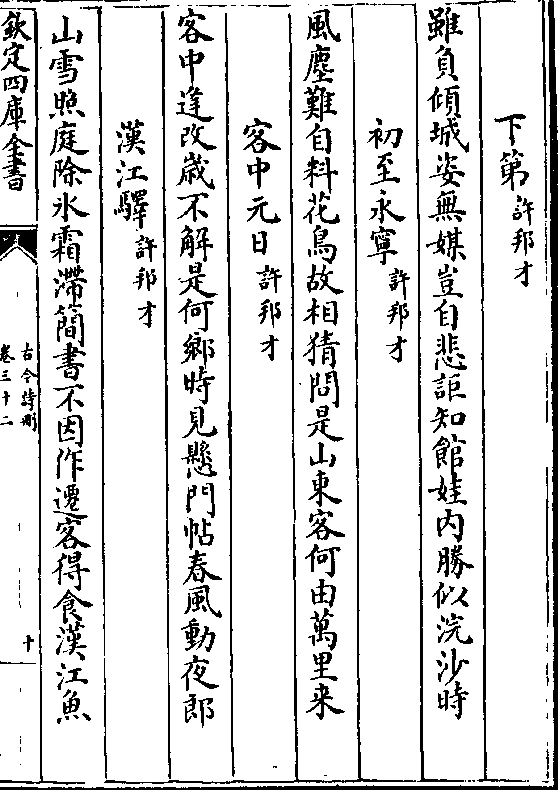 下第許邦才
雖負傾城姿無媒豈自悲詎知館娃内勝似浣沙時
初至永寧許邦才
風塵難自料花鳥故相猜問是山東客何由萬里来
客中元日許邦才
客中逢改歳不解是何鄉時見懸門帖春風動夜郎
漢江驛許邦才
山雪照庭除氷霜滯簡書不因作遷客得食漢江魚
欽定四庫全書
古今詩刪
卷三十二
十